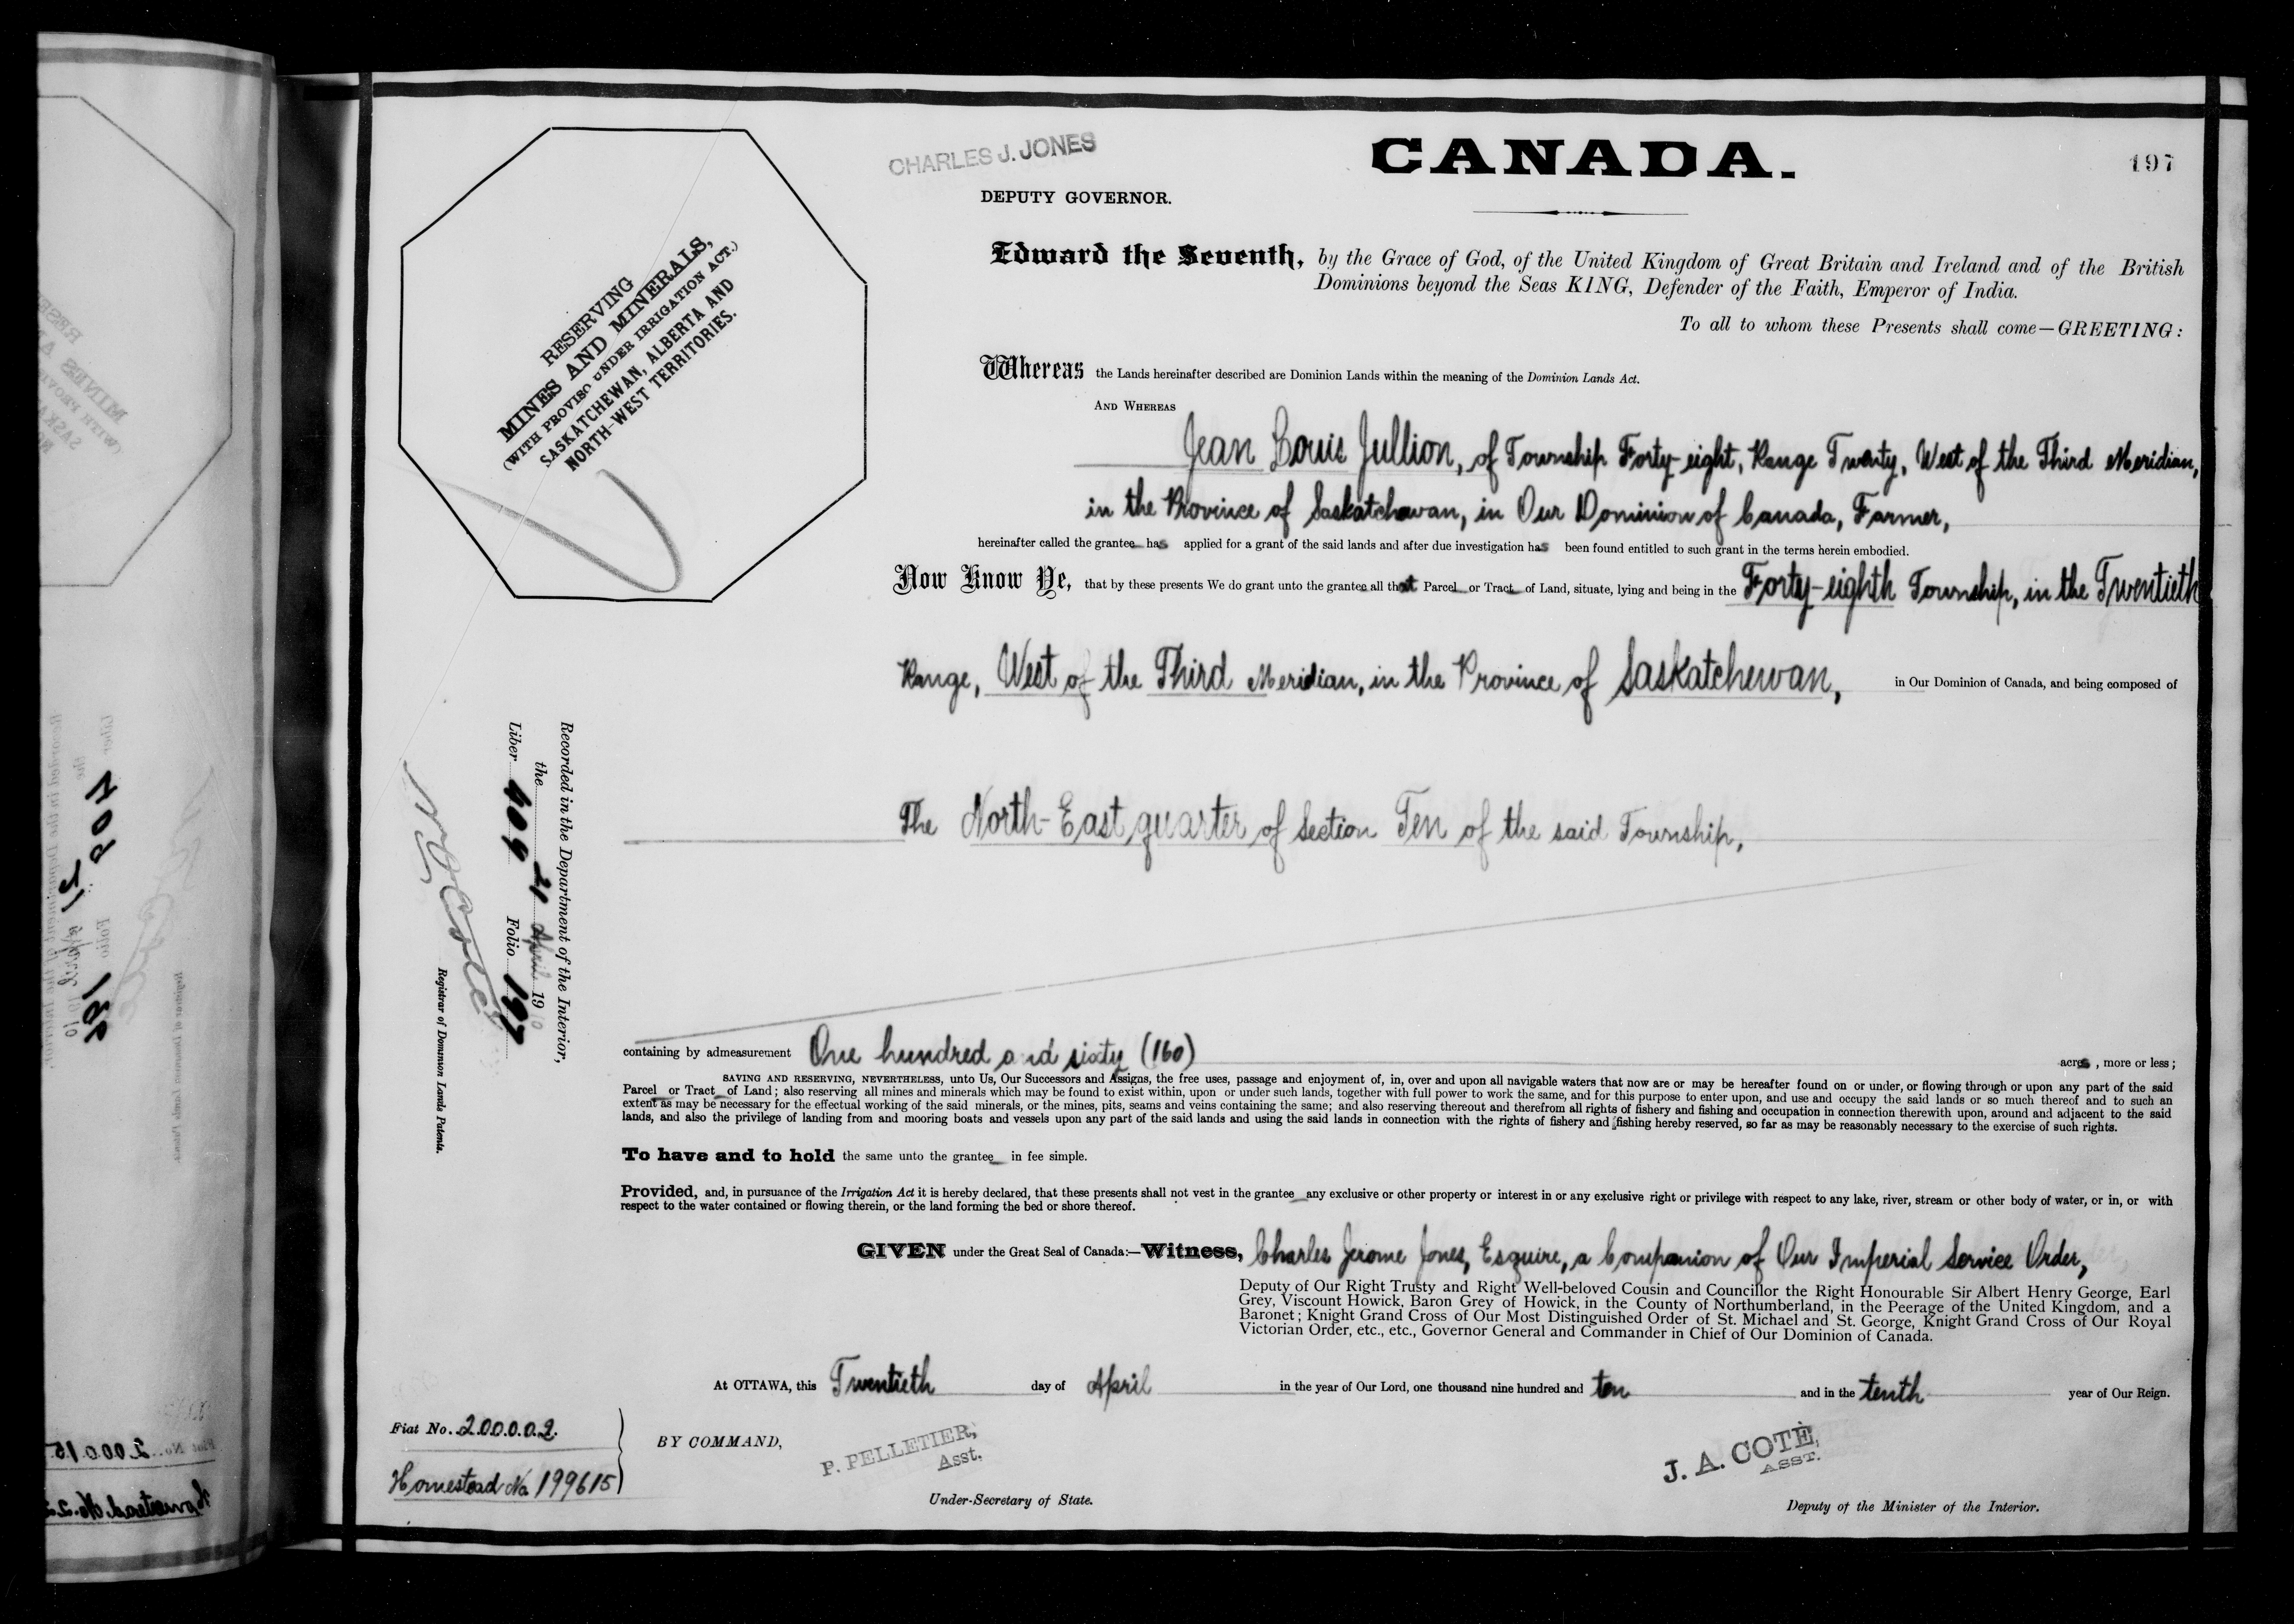 CHARLES J. JONES
CANADA.
197
DEPUTY GOVERNOR.
RESERVING
MINES AND MINERALS,
(WITH PROVISO UNDER IRRIGATION ACT.)
SASKATCHEWAN, ALBERTA AND
NORTH-WEST TERRITORIES.
Edward the Seventh, by the Grace of God, of the United Kingdom of Great Britain and Ireland and of the British
Dominions beyond the Seas KING, Defender of the Faith, Emperor of India.
To all to whom these Presents shall come—GREETING:
Whereas the Lands hereinafter described are Dominion Lands within the meaning of the Dominion Lands Act.
AND WHEREAS
Jean Louis Jullion, of Township Forty-eight, Range Twenty, West of the Third Meridian,
in the Province of Saskatchewan, in Our Dominion of Canada, Farmer,
hereinafter called the grantee has applied for a grant of the said lands and after due investigation has been found entitled to such grant in the terms herein embodied.
Now Know Ye, that by these presents We do grant unto the grantee all that Parcel or Tract of Land, situate, lying and being in the Forty-eighth Township, in the Twentieth
Range, West of the Third Meridian, in the Province of Saskatchewan, in Our Dominion of Canada, and being composed of
The North-East quarter of Section Ten of the said Township,
Recorded in the Department of the Interior,
the 21 April 1910
Liber 409 Folio 197
Registrar of Dominion Lands Patents.
containing by admeasurement One hundred and sixty (160) acres, more or less;
SAVING AND RESERVING, NEVERTHELESS, unto Us, Our Successors and Assigns, the free uses, passage and enjoyment of, in, over and upon all navigable waters that now are or may be hereafter found on or under, or flowing through or upon any part of the said
Parcel or Tract of Land; also reserving all mines and minerals which may be found to exist within, upon or under such lands, together with full power to work the same, and for this purpose to enter upon, and use and occupy the said lands or so much thereof and to such an
extent as may be necessary for the effectual working of the said minerals, or the mines, pits, seams and veins containing the same; and also reserving thereout and therefrom all rights of fishery and fishing and occupation in connection therewith upon, around and adjacent to the said
lands, and also the privilege of landing from and mooring boats and vessels upon any part of the said lands and using the said lands in connection with the rights of fishery and fishing hereby reserved, so far as may be reasonably necessary to the exercise of such rights.
To have and to hold the same unto the grantee in fee simple.
Provided, and, in pursuance of the Irrigation Act it is hereby declared, that these presents shall not vest in the grantee any exclusive or other property or interest in or any exclusive right or privilege with respect to any lake, river, stream or other body of water, or in, or with
respect to the water contained or flowing therein, or the land forming the bed or shore thereof.
GIVEN under the Great Seal of Canada:—Witness, Charles Jerome Jones, Esquire, a Companion of Our Imperial Service Order,
Deputy of Our Right Trusty and Right Well-beloved Cousin and Councillor the Right Honourable Sir Albert Henry George, Earl
Grey, Viscount Howick, Baron Grey of Howick, in the County of Northumberland, in the Peerage of the United Kingdom, and a
Baronet; Knight Grand Cross of Our Most Distinguished Order of St. Michael and St. George, Knight Grand Cross of Our Royal
Victorian Order, etc., etc., Governor General and Commander in Chief of Our Dominion of Canada.
At OTTAWA, this Twentieth day of April in the year of Our Lord, one thousand nine hundred and ten and in the tenth year of Our Reign.
Fiat No. 200002.
Homestead No. 199615
BY COMMAND,
P. PELLETIER,
Asst.
Under-Secretary of State.
J. A. COTÉ,
ASST.
Deputy of the Minister of the Interior.